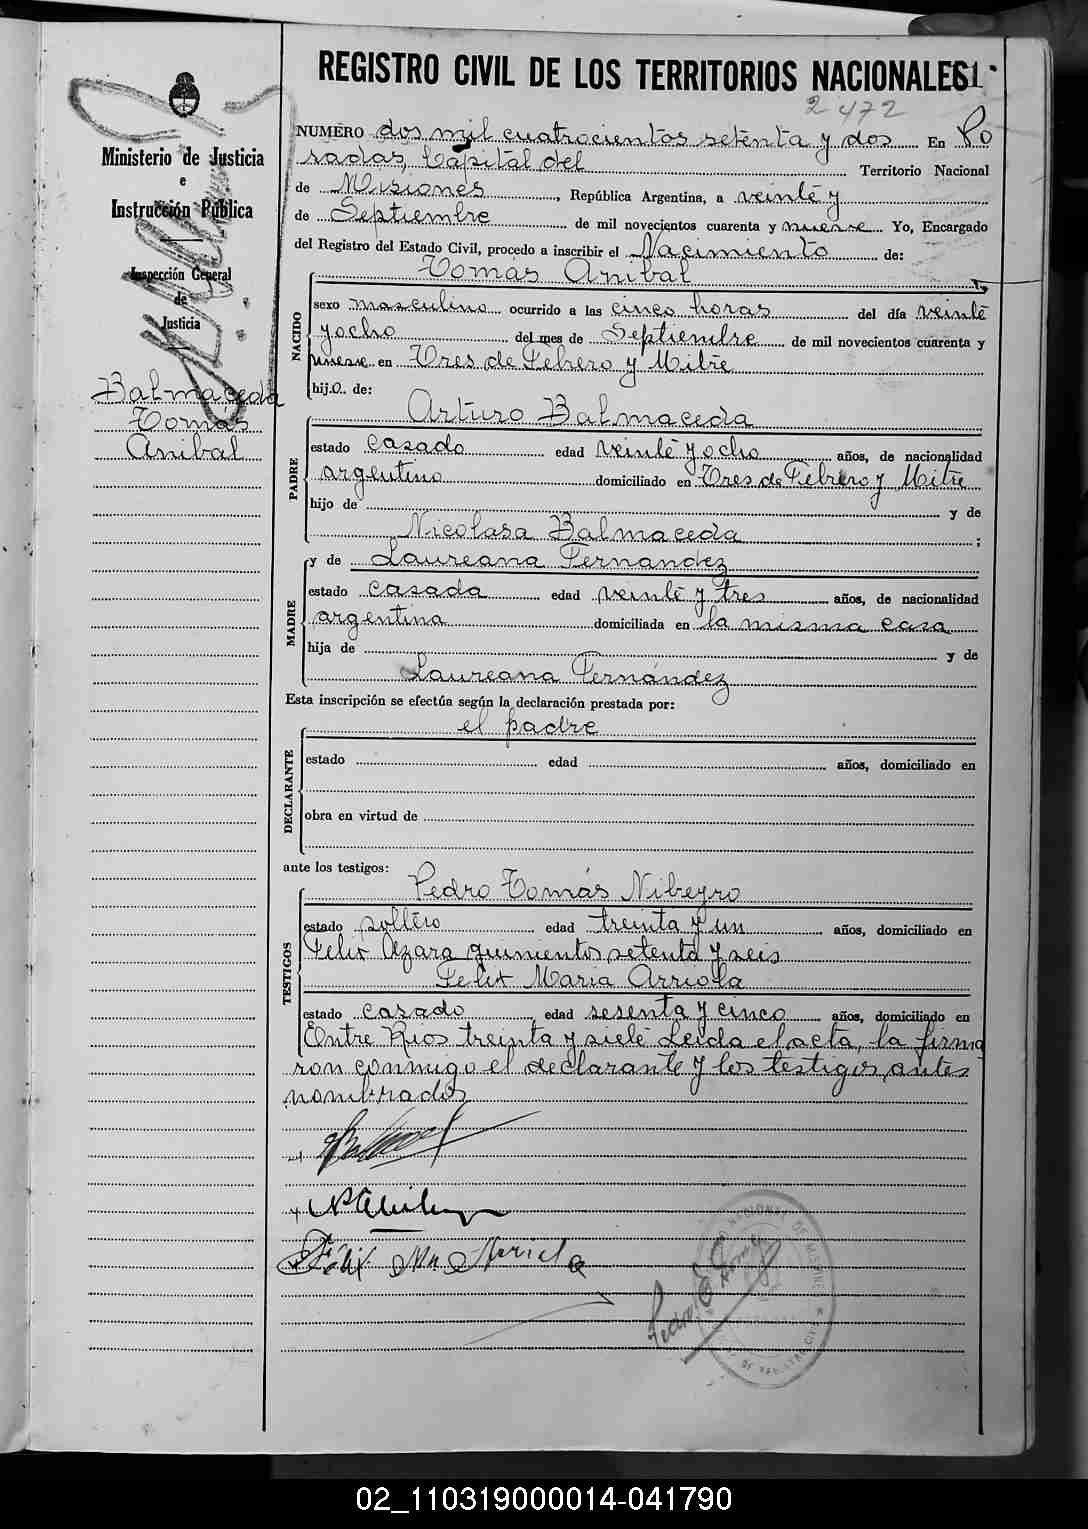 REGISTRO CIVIL DE LOS TERRITORIOS NACIONALES 61
2472
Ministerio de Justicia
e
Instrucción Pública
Inspección General
de
Justicia
Balmaceda
Tomás
Anibal
NUMERO dos mil cuatrocientos setenta y dos En Po
sadas, Capital del Territorio Nacional
de Misiones, República Argentina, a veinte y
de Septiembre de mil novecientos cuarenta y nueve Yo, Encargado
del Registro del Estado Civil, procedo a inscribir el Nacimiento de:
NACIDO
Tomás Anibal
sexo masculino ocurrido a las cinco horas del día veinte
y ocho del mes de Septiembre de mil novecientos cuarenta y
nueve en Tres de Febrero y Mitre
hijo. de:
PADRE
Arturo Balmaceda
estado casado edad veinte y ocho años, de nacionalidad
argentino domiciliado en Tres de Febrero y Mitre
hijo de y de
Nicolasa Balmaceda ;
MADRE
y de Laureana Fernandez
estado casada edad veinte y tres años, de nacionalidad
argentina domiciliada en la misma casa
hija de y de
Laureana Fernández
Esta inscripción se efectúa según la declaración prestada por:
DECLARANTE
el padre
estado edad años, domiciliado en
obra en virtud de
ante los testigos:
TESTIGOS
Pedro Tomás Nibeyro
estado soltero edad treinta y un años, domiciliado en
Felix Azara quinientos setenta y seis
Felix Maria Arriola
estado casado edad sesenta y cinco años, domiciliado en
Entre Rios treinta y siete Leida el acta, la firma
ron conmigo el declarante y los testigos antes
nombrados
Félix Ma Arriola
Pedro
02_110319000014-041790